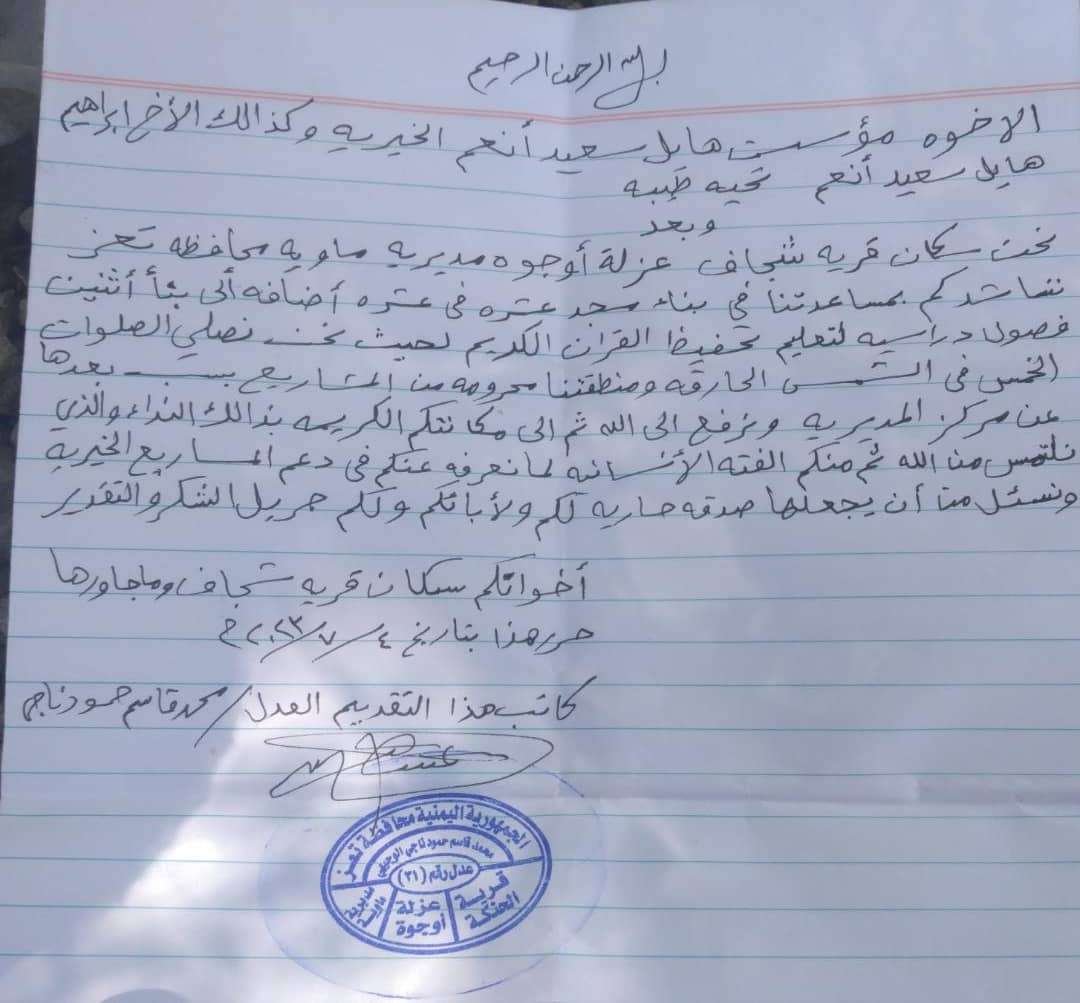 بسم الله الرحمن الرحيم
الاخوه مؤسست هايل سعيد أنعم الخيريه وكذالك الأخ ابراهيم
هايل سعيد أنعم تحيه طيبه
وبعد
نحن سكان قريه شجاف عزلة أوجوه مديريه ماويه محافظه تعز
نناشدكم بمساعدتنا في بناء مسجد عشره في عشره أضافه ألى بنأ أثنين
فصول دراسيه لتعليم تحفيظ القران الكريم لحيث نحن نصلي الصلوات
الخمس في الشمس الحارقه ومنطقتنا محرومه من المشاريع بسبب بعدها
عن مركز المديريه ونرفع الى الله ثم الى مكانتكم الكريمه بذالك النداء والذي
نلتمس من الله ثم منكم الفته الأنسانيه لما نعرفه عنكم في دعم المشاريع الخيريه
ونسئل من أن يجعلها صدقه جاريه لكم ولأبائكم ولكم جزيل الشكر والتقدير
أخوانكم سكان قريه شجاف وماجاورها
حرر هذا بتاريخ ٤/٧/٢٠٢٣م
كاتب هذا التقديم العدل/محمد قاسم حمود ناجي
الجمهورية اليمنية محافظة تعز
محمد قاسم حمود ناجي الوجيهي
عدل رقم (٢١)
مديرية ماوية
عزلة أوجوة
قرية الحنكة